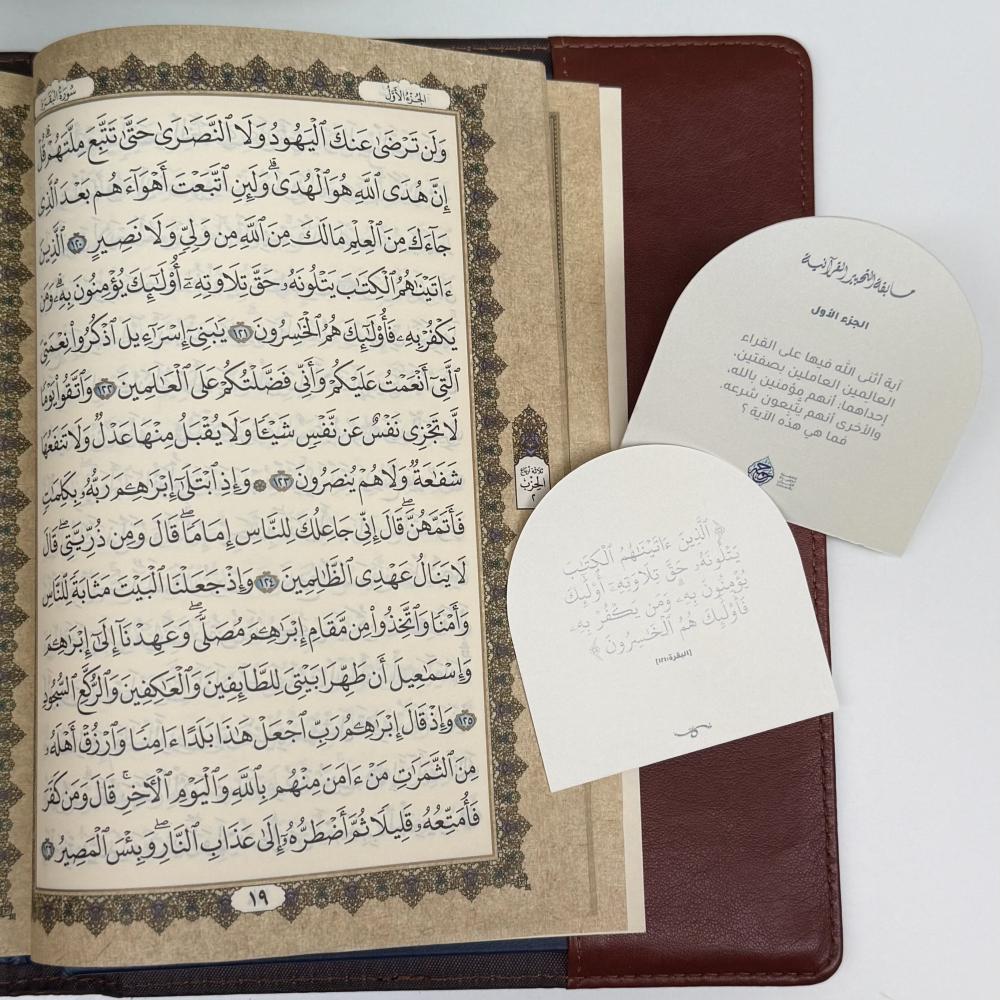 الجزء الأول
سورة البقرة
وَلَن تَرْضَىٰ عَنكَ ٱلْيَهُودُ وَلَا ٱلنَّصَٰرَىٰ حَتَّىٰ تَتَّبِعَ مِلَّتَهُمْ ۗ قُلْ
إِنَّ هُدَى ٱللَّهِ هُوَ ٱلْهُدَىٰ ۗ وَلَئِنِ ٱتَّبَعْتَ أَهْوَآءَهُم بَعْدَ ٱلَّذِى
جَآءَكَ مِنَ ٱلْعِلْمِ مَا لَكَ مِنَ ٱللَّهِ مِن وَلِىٍّ وَلَا نَصِيرٍ ١٢٠ ٱلَّذِينَ
ءَاتَيْنَٰهُمُ ٱلْكِتَٰبَ يَتْلُونَهُۥ حَقَّ تِلَاوَتِهِۦٓ أُو۟لَٰٓئِكَ يُؤْمِنُونَ بِهِۦ ۗ وَمَن
يَكْفُرْ بِهِۦ فَأُو۟لَٰٓئِكَ هُمُ ٱلْخَٰسِرُونَ ١٢١ يَٰبَنِىٓ إِسْرَٰٓءِيلَ ٱذْكُرُوا۟ نِعْمَتِىَ
ٱلَّتِىٓ أَنْعَمْتُ عَلَيْكُمْ وَأَنِّى فَضَّلْتُكُمْ عَلَى ٱلْعَٰلَمِينَ ١٢٢ وَٱتَّقُوا۟ يَوْمًا
لَّا تَجْزِى نَفْسٌ عَن نَّفْسٍ شَيْـًٔا وَلَا يُقْبَلُ مِنْهَا عَدْلٌ وَلَا تَنفَعُهَا
شَفَٰعَةٌ وَلَا هُمْ يُنصَرُونَ ١٢٣ ۞ وَإِذِ ٱبْتَلَىٰٓ إِبْرَٰهِـۧمَ رَبُّهُۥ بِكَلِمَٰتٍ
فَأَتَمَّهُنَّ ۖ قَالَ إِنِّى جَاعِلُكَ لِلنَّاسِ إِمَامًا ۖ قَالَ وَمِن ذُرِّيَّتِى ۖ قَالَ
لَا يَنَالُ عَهْدِى ٱلظَّٰلِمِينَ ١٢٤ وَإِذْ جَعَلْنَا ٱلْبَيْتَ مَثَابَةً لِّلنَّاسِ
وَأَمْنًا وَٱتَّخِذُوا۟ مِن مَّقَامِ إِبْرَٰهِـۧمَ مُصَلًّى ۖ وَعَهِدْنَآ إِلَىٰٓ إِبْرَٰهِـۧمَ
وَإِسْمَٰعِيلَ أَن طَهِّرَا بَيْتِىَ لِلطَّآئِفِينَ وَٱلْعَٰكِفِينَ وَٱلرُّكَّعِ ٱلسُّجُودِ
١٢٥ وَإِذْ قَالَ إِبْرَٰهِـۧمُ رَبِّ ٱجْعَلْ هَٰذَا بَلَدًا ءَامِنًا وَٱرْزُقْ أَهْلَهُۥ
مِنَ ٱلثَّمَرَٰتِ مَنْ ءَامَنَ مِنْهُم بِٱللَّهِ وَٱلْيَوْمِ ٱلْءَاخِرِ ۖ قَالَ وَمَن كَفَرَ
فَأُمَتِّعُهُۥ قَلِيلًا ثُمَّ أَضْطَرُّهُۥٓ إِلَىٰ عَذَابِ ٱلنَّارِ ۖ وَبِئْسَ ٱلْمَصِيرُ
١٩
ثلاثة أرباع
الحزب
٢
مسابقة التحبير القرآنية
الجزء الأول
آية أثنى الله فيها على القراء
العالمين العاملين بصفتين،
إحداهما: أنهم مؤمنين بالله،
والأخرى أنهم يتبعون شرعه.
فما هي هذه الآية ؟
﴿ ٱلَّذِينَ ءَاتَيْنَٰهُمُ ٱلْكِتَٰبَ
يَتْلُونَهُۥ حَقَّ تِلَاوَتِهِۦٓ أُو۟لَٰٓئِكَ
يُؤْمِنُونَ بِهِۦ ۗ وَمَن يَكْفُرْ بِهِۦ
فَأُو۟لَٰٓئِكَ هُمُ ٱلْخَٰسِرُونَ ﴾
[البقرة:١٢١]